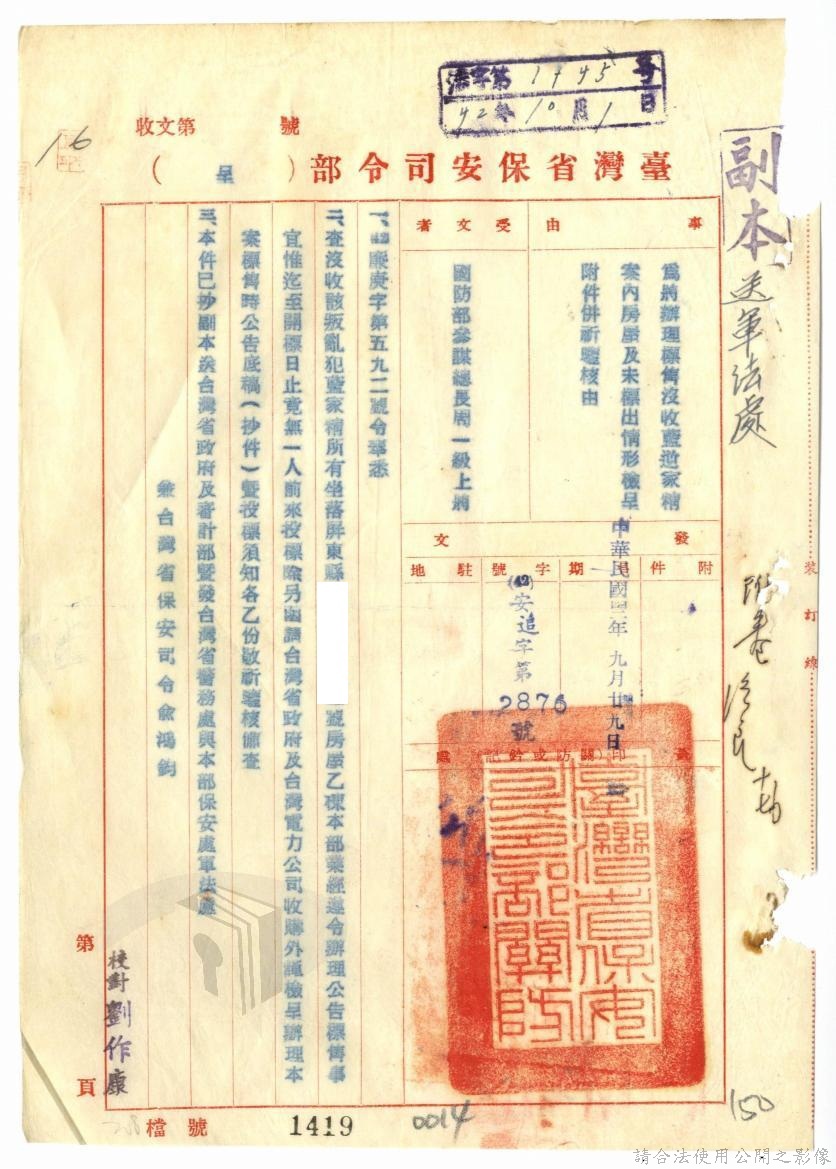 副本
送軍法處
字第1445号
42年10月1日
收文第 號
16
臺灣省保安司令部(呈)
事由
為將辦理標售沒收藍逆家精
案內房屋及未標出情形檢呈
附件併祈鑒核由
受文者
國防部參謀總長周一級上將
發文
附件
日期
中華民國四二年九月廿九日
字號
(42)安追字第
2876
號
駐地
蓋印(關防或鈐記)處
臺灣省保安司令部關防
一、42廉庚字第五九二號令奉悉
二、查沒收該叛亂犯藍家精所有坐落屏東縣 號房屋乙棟本部業經遵令辦理公告標售事
宜惟迄至開標日止竟無一人前來投標除另函請台灣省政府及台灣電力公司收購外謹檢呈辦理本
案標售時公告底稿(抄件)暨投標須知各乙份敬祈鑒核備查
三、本件已抄副本送台灣省政府及審計部暨發台灣省警務處與本部保安處軍法處
兼台灣省保安司令俞鴻鈞
校對劉作康
第 頁
裝訂線
檔號
1419
0014
150
請合法使用公開之影像